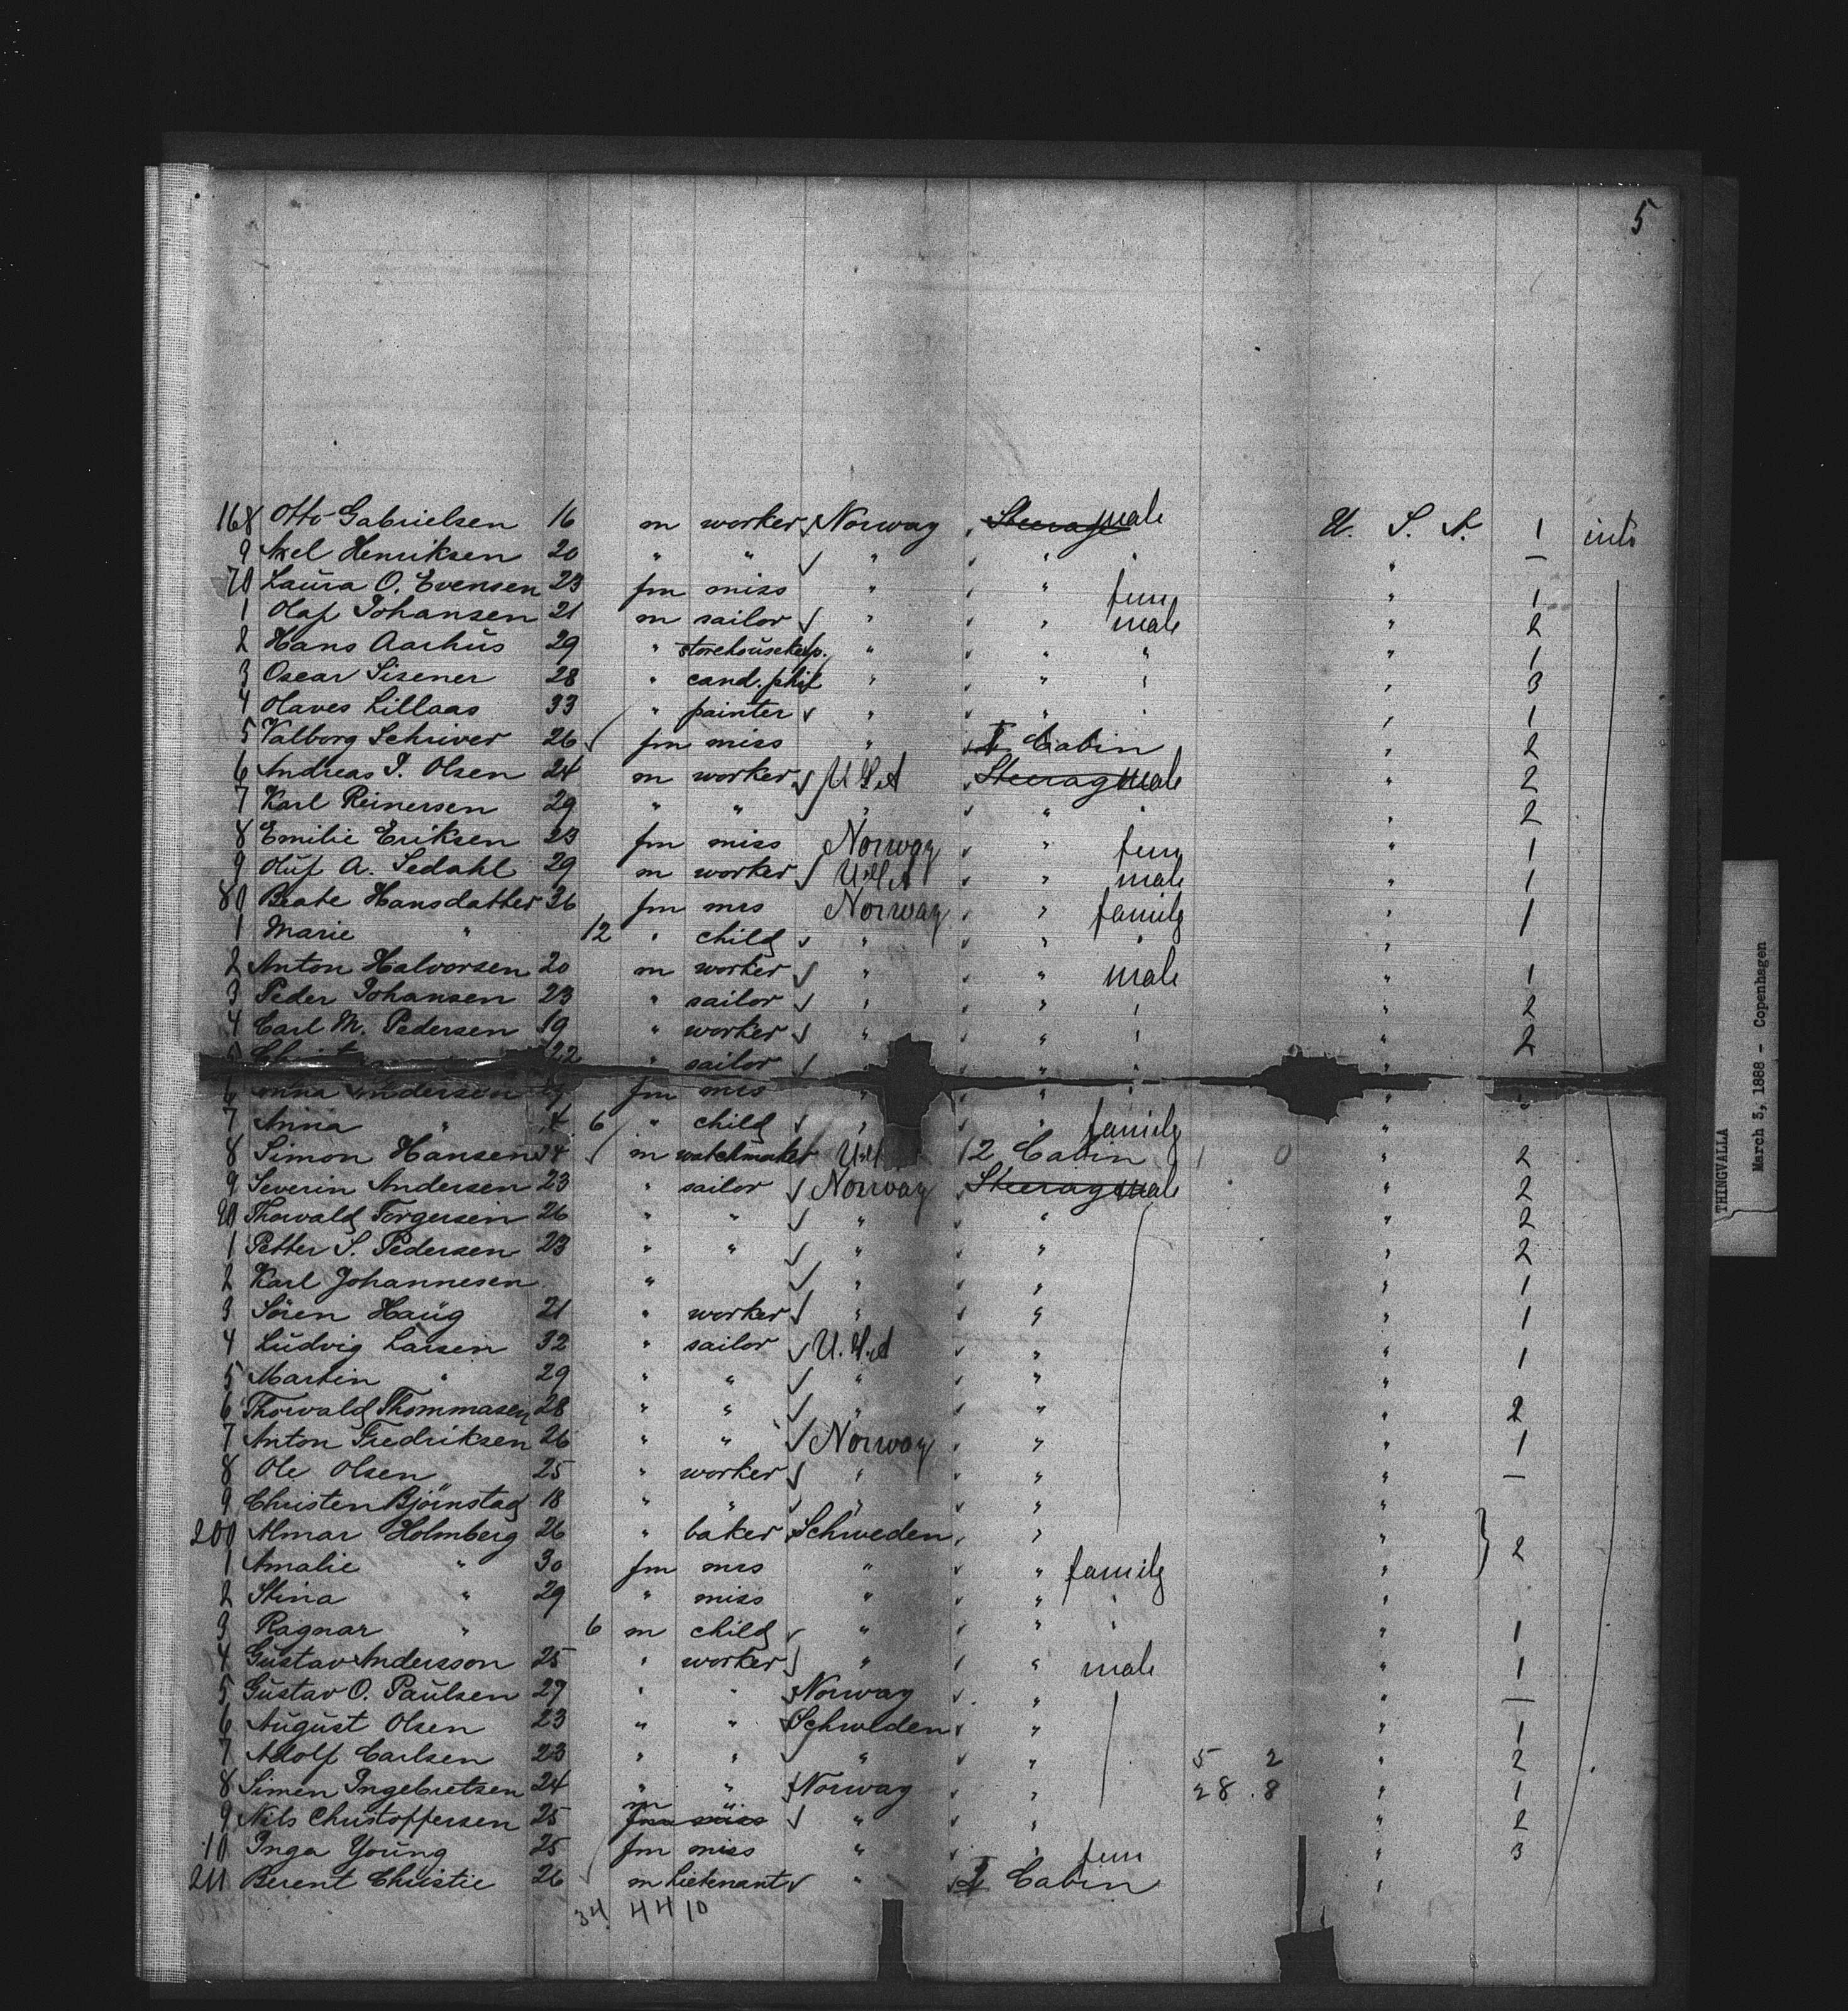 5
168 Otto Gabrielsen 16 m worker Norway Steerage male U. S. A. 1 into
9 Axel Henriksen 20 " " " " " " —
70 Laura O. Evensen 23 fm miss " " fem " 1
1 Olaf Johansen 21 m sailor " " male " 2
2 Hans Aarhus 29 " storehousekeep. " " " " 1
3 Oscar Sisener 28 " cand. phil " " " " 3
4 Olaves Lillaas 33 " painter " " " " 1
5 Valborg Schriver 26 fm miss " I Cabin " 2
6 Andreas P. Olsen 24 m worker U S A Steerage male " 2
7 Karl Reinersen 29 " " " " " " 2
8 Emilie Eriksen 23 fm miss Norway " fem " 1
9 Oluf A. Sedahl 29 m worker U S A " male " 1
80 Beate Hansdatter 36 fm mrs Norway " family " 1
1 Marie " 12 " child " " " "
2 Anton Halvorsen 20 m worker " " male " 1
3 Peder Johansen 23 " sailor " " " " 2
4 Carl M. Pedersen 19 " worker " " " " 2
22 " sailor " "
6 Andersen fm mrs " " " "
7 Anna " 6 " child " " family "
8 Simon Hansen 34 m watchmaker 2 Cabin 1 0 " 2
9 Severin Andersen 23 " sailor Norway Steerage male " 2
90 Thorvald Torgersen 26 " " " " " 2
1 Petter S. Pedersen 23 " " " " " 2
2 Karl Johannesen " " " " 1
3 Sören Haug 21 " worker " " " 1
4 Ludvig Larsen 32 " sailor U. S. A " " 1
5 Martin " 29 " " " " "
6 Thorvald Thommasen 28 " " " " " 2
7 Anton Fredriksen 26 " " Norway " " 1
8 Ole Olsen 25 " worker " " " —
9 Christen Björnstad 18 " " " " "
200 Almar Holmberg 26 " baker Schweden " " 2
1 Amalie " 30 fm mrs " " family "
2 Stina " 29 " miss " " " "
3 Ragnar " 6 m child " " " " 1
4 Gustav Andersson 25 " worker " " male " 1
5 Gustav O. Paulsen 27 " " Norway " " —
6 August Olsen 23 " " Schweden " " 1
7 Adolf Carlsen 23 " " " " 5 2 " 2
8 Simen Ingebretsen 24 " " Norway " 28 . 8 " 1
9 Nils Christoffersen 25 m " fm miss " " " 2
10 Inga Young 25 fm miss " " fem " 3
211 Berent Christie 26 m Lietenant " I Cabin "
34 44 10
THINGVALLA
March 3, 1888 - Copenhagen